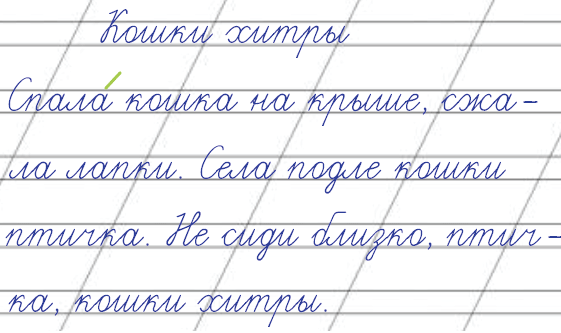 Кошки хитры
Спала́ кошка на крыше, сжа-
ла лапки. Села подле кошки
птичка. Не сиди близко, птич-
ка, кошки хитры.